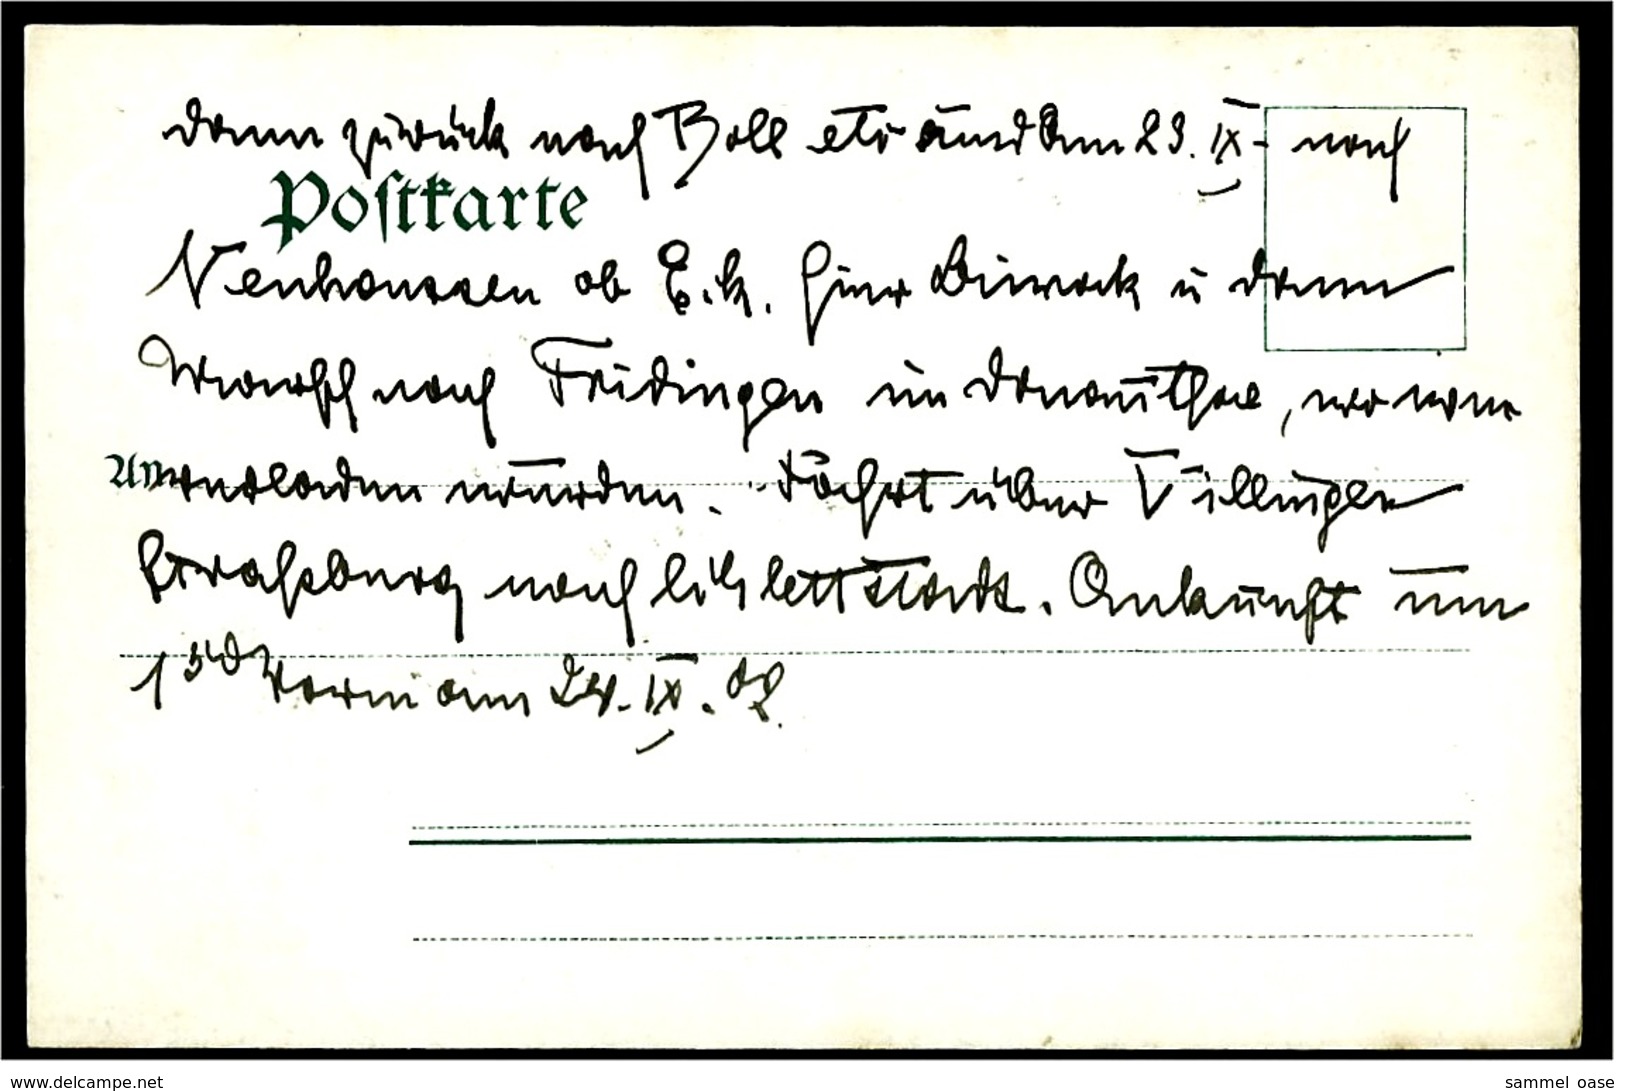 dann zurück nach Boll etc und am 23. IX. nach
Postkarte
Neuhausen ob E.k. Hier Biwack u dann
Marsch nach Fridingen im Donauthal, wo wir
An verladen wurden. Fahrt über Villingen
Straßburg nach Schlettstadt. Ankunft um
1 30 Vorm am 24. IX. 02.
www.delcampe.net
sammel_oase